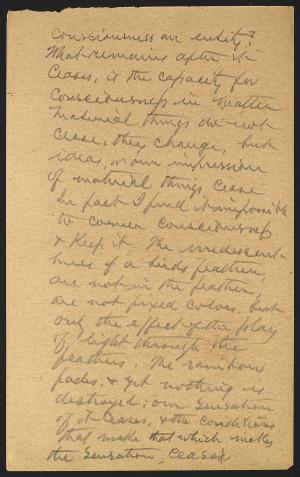 consciousness an entity?
What remains after it
ceases, is the capacity for
consciousness in matter
material things do not
cease, they change, but
ideas, or our impression
of material things cease
In fact I find it impossible
to corner consciousness
& keep it. The iridescent
hues of a birds feather,
are not in the feather,
are not fixed colors, but
only the effect of the play
of light through the
feathers. The rainbow
fades & yet nothing is
destroyed; our sensation
of it ceases, & the conditions
that make that which makes
the sensation, ceases